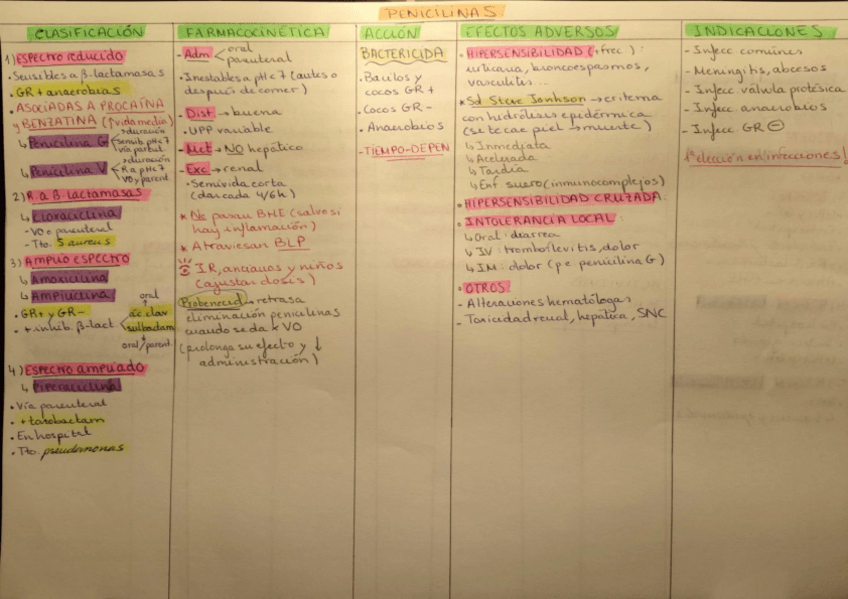 PENICILINAS
CLASIFICACIÓN
1) ESPECTRO REDUCIDO
• Sensibles a β-lactamasas
• GR+ anaerobias
• ASOCIADAS A PROCAÍNA
y BENZATINA (↑vida media)
↳ Penicilina G
>duración
sensib pH<7
vía partul
↳ Penicilina V
>duración
R a pH<7
VO y parent
2) R a β-lactamasas
↳ Cloxacilina
- VO o parenteral
- Tto. S. aureus
3) AMPLIO ESPECTRO
↳ Amoxicilina
↳ Ampicilina
• GR+ y GR-
• + inhib. β-lact
oral
ác clav
sulbactam
oral/parent
4) ESPECTRO AMPLIADO
↳ Piperacilina
• Vía parenteral
• + tazobactam
• En hospital
• Tto. pseudomonas
FARMACOCINÉTICA
- Adm
oral
parenteral
• Inestables a pH<7 (antes o
después de comer)
- Dist → buena
• UPP variable
- Met → NO hepático
- Exc → renal
• Semivida corta
(dar cada 4/6h)
* No pasan BHE (salvo si
hay inflamación)
* Atraviesan BLP
IR, ancianos y niños
(ajustar dosis)
Probenecid → retrasa
eliminación penicilinas
cuando se da x VO
(prolonga su efecto y ↓
administración)
ACCIÓN
BACTERICIDA
• Bacilos y
cocos GR+
• Cocos GR-
• Anaerobios
- TIEMPO-DEPEN
EFECTOS ADVERSOS
• HIPERSENSIBILIDAD (+frec):
urticaria, broncoespasmos,
vasculitis...
* Sd Steve Jonhson → eritema
con hidrólisis epidérmica
(se te cae piel → muerte)
↳ Inmediata
↳ Acelerada
↳ Tardía
↳ Enf suero (inmunocomplejos)
• HIPERSENSIBILIDAD CRUZADA
• INTOLERANCIA LOCAL:
↳ Oral: diarrea
↳ IV: tromboflevitis, dolor
↳ IM: dolor (pe penicilina G)
• OTROS
- Alteraciones hematólogas
- Toxicidad renal, hepática, SNC
INDICACIONES
- Infecc comunes
- Meningitis, abscesos
- Infecc válvula protésica
- Infecc anaerobios
- Infecc GR ⊖
1ª elección en infecciones!